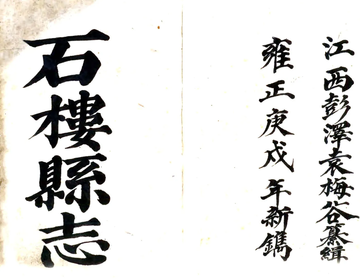 江西彭澤袁梅谷纂緝
雍正庚戌年新鐫
石樓縣志